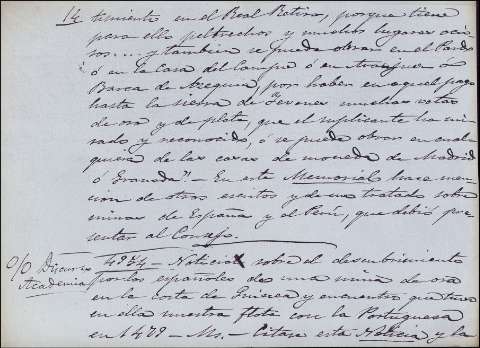 14 timiento en el Real Retiro, porque tiene
para ello peltrechos y muchos lugares ocio
sos.... y tambien se puede obrar en el Pardo
ó en la Casa del Campo ó en Aranjuez ó
Barca de Azequia, por haber en aquel pago
hasta la sierra de Yevenes muchas vetas
de oro y de plata, que el suplicante ha mi
rado y reconocido, ó se puede obrar en cual
quiera de las casas de moneda de Madrid
ó Granada". - En este Memorial hace men
cion de otros escritos y de un tratado sobre
minas de España y el Perú, que debió pre
sentar al Consejo.
4274 - Noticia sobre el descubrimiento
Academia por los españoles de una mina de oro
en la costa de Guinea y encuentro que tuvo
en ella nuestra flota con la Portuguesa
en 1479 - Ms. - Citase esta Noticia y la